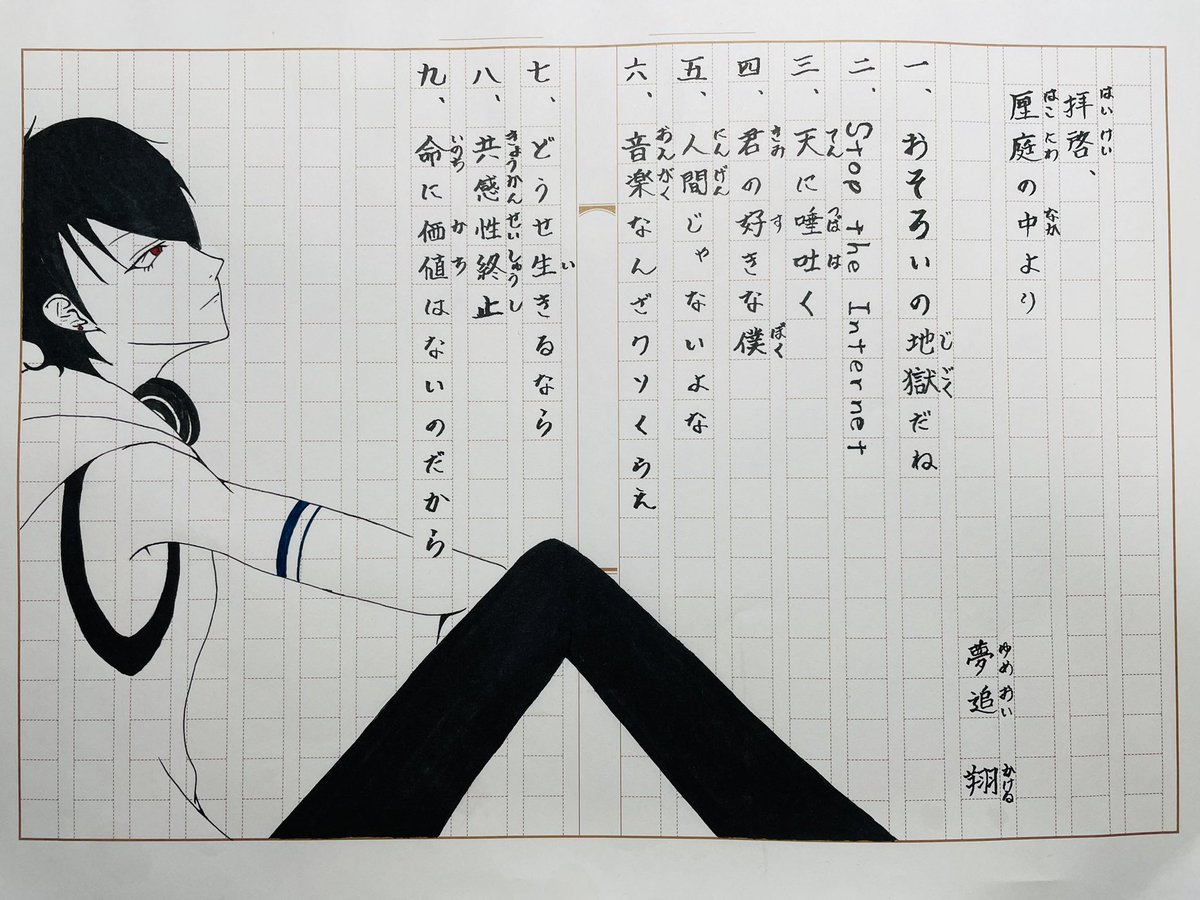 拝啓、
匣庭の中より
夢追 翔
一、おそろいの地獄だね
二、Stop the Internet
三、天に唾吐く
四、君の好きな僕
五、人間じゃないよな
六、音楽なんざクソくらえ
七、どうせ生きるなら
八、共感性終止
九、命に価値はないのだから
はいけい
はこにわ なか
ゆめおい かける
じごく
てん つばは
きみ す ぼく
にんげん
おんがく
い
きょうかんせいしゅうし
いのち かち